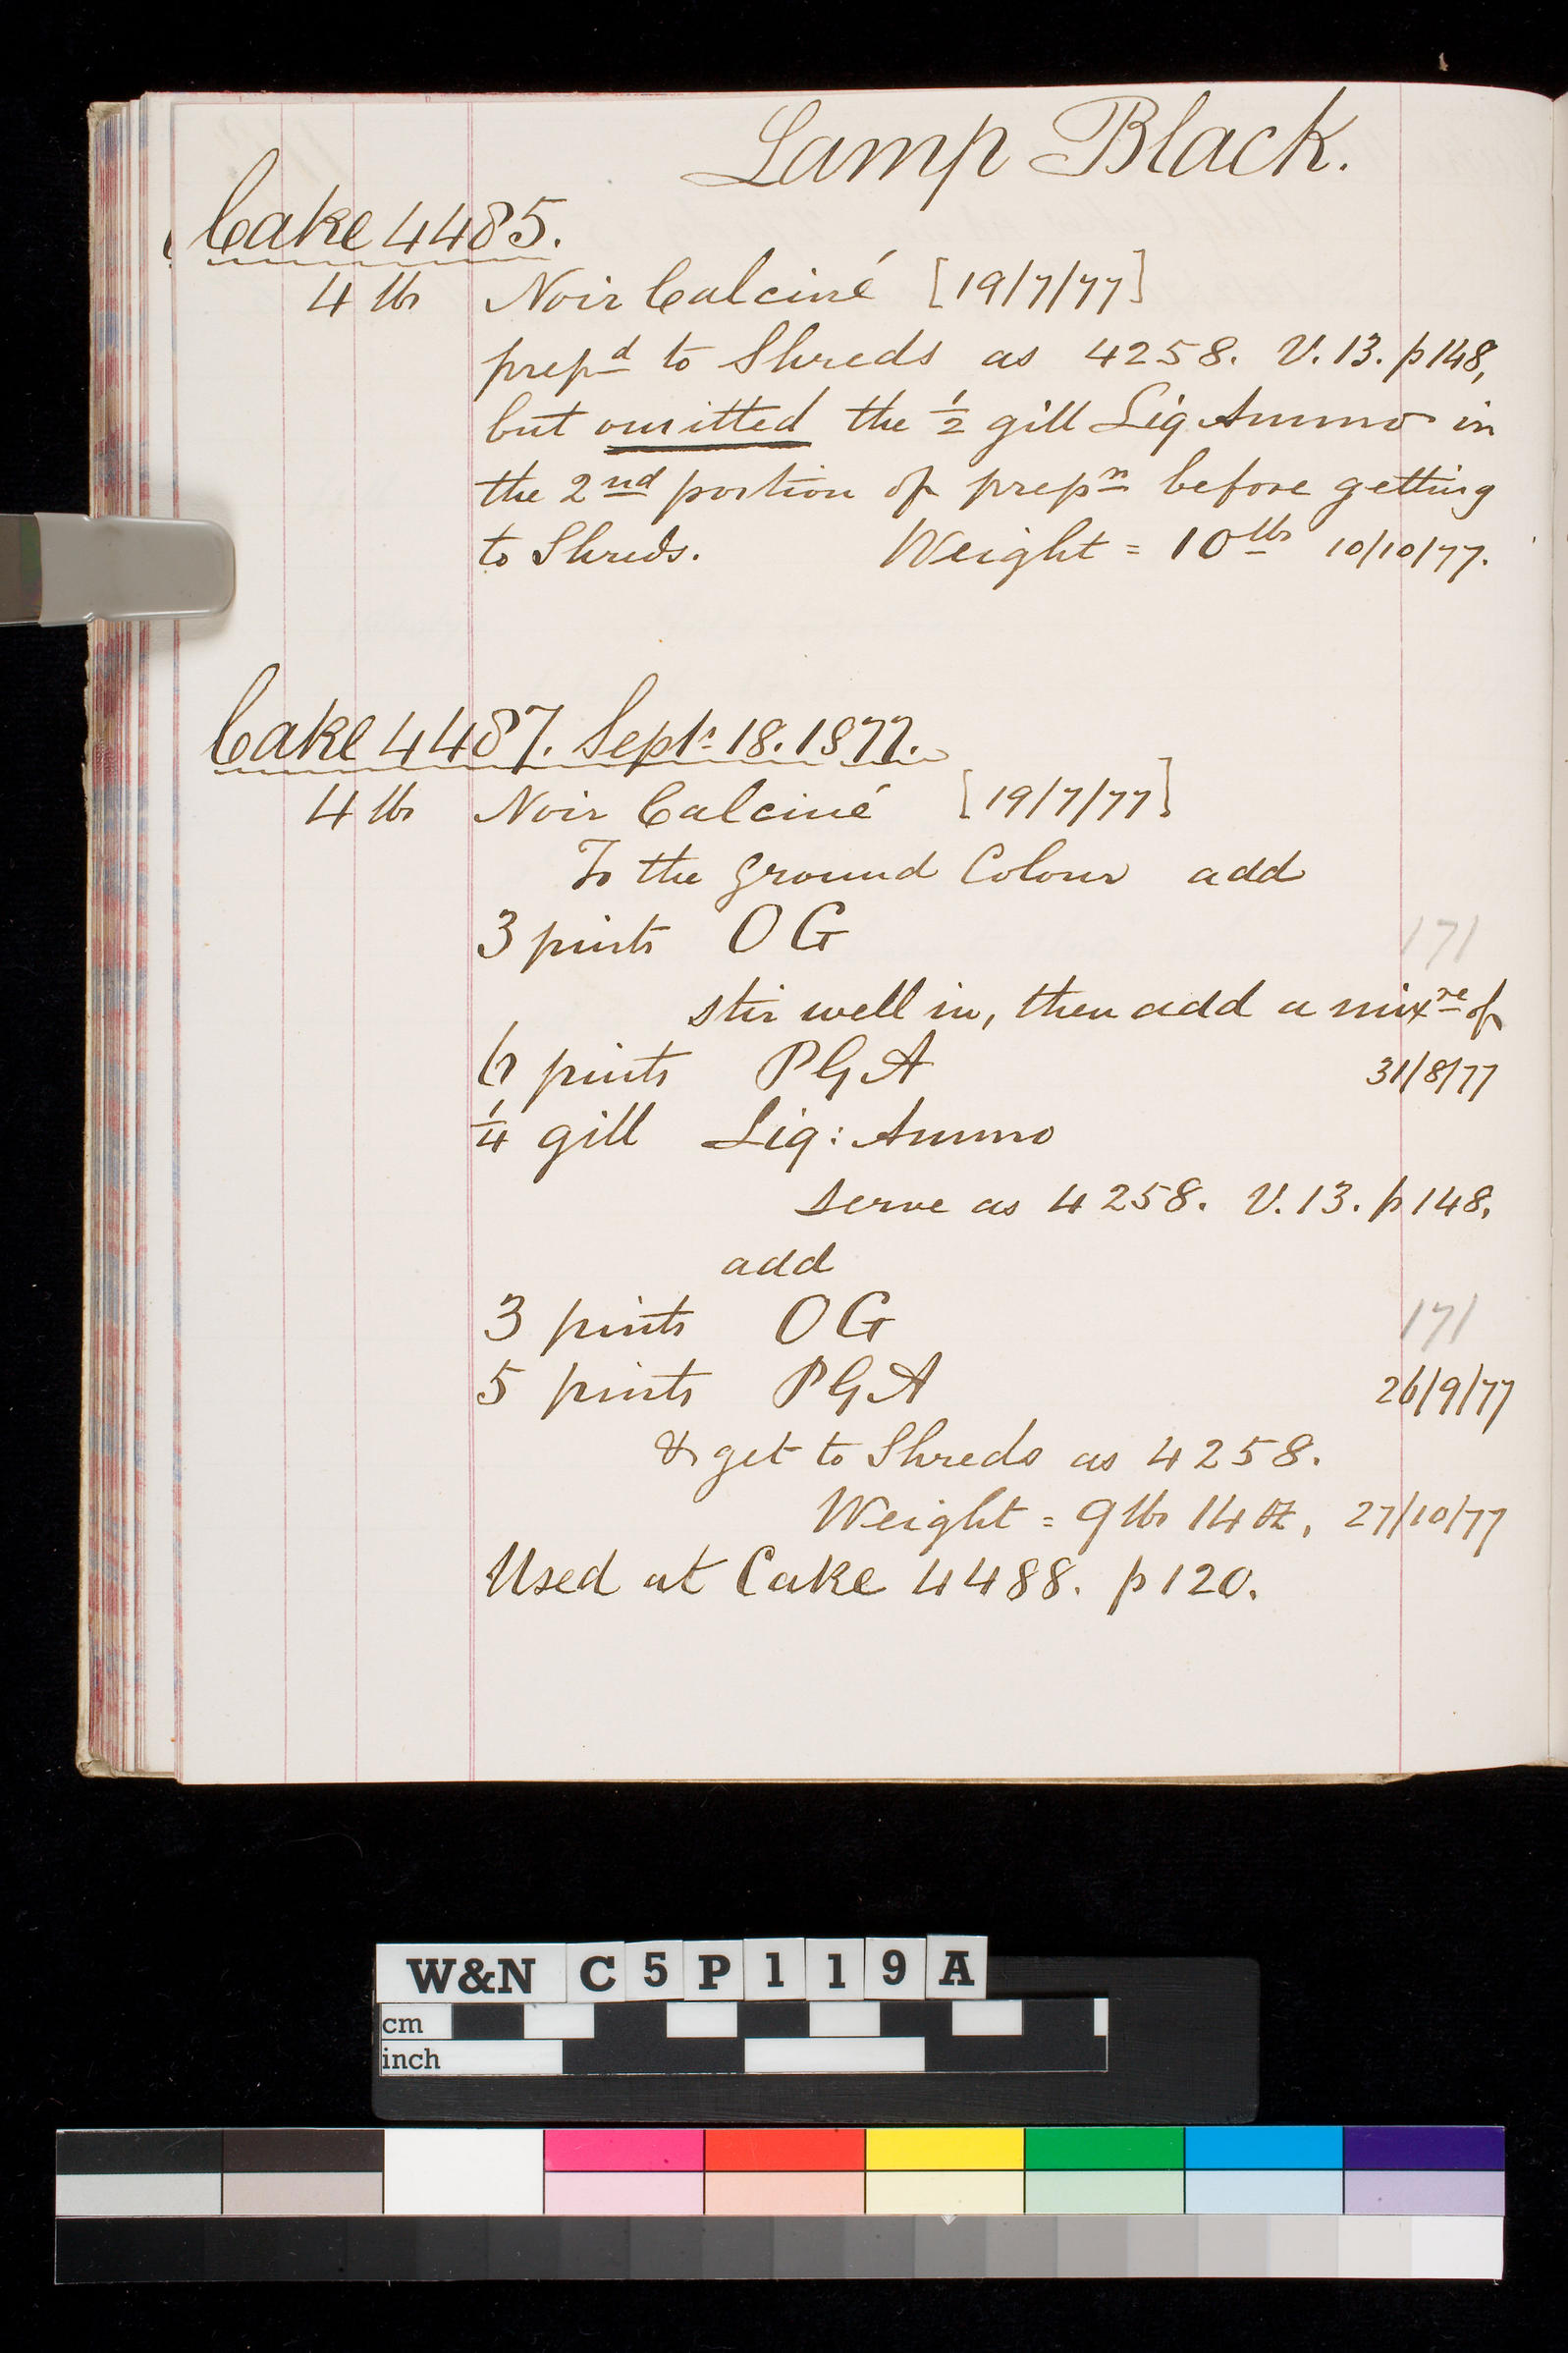 Lamp Black.
Cake 4485.
4 lbs Noir Calciné [19/7/77]
prepd to Shreds as 4258. V. 13. p 148,
but omitted the ½ gill Liq Ammo in
the 2nd portion of prepn before getting
to Shreds. Weight = 10 lbs 10/10/77.
Cake 4487. Sept: 18. 1877.
4 lbs Noir Calciné [19/7/77]
To the ground Colour add
3 pints OG 171
stir well in, then add a mixre of
6 pints PGA 31/8/77
¼ gill Liq: Ammo
serve as 4258. V. 13. p 148.
add
3 pints OG 171
5 pints PGA 26/9/77
& get to Shreds as 4258.
Weight = 9 lbs 14 oz. 27/10/77
Used at Cake 4488. p 120.
W&N C5P119A
cm
inch